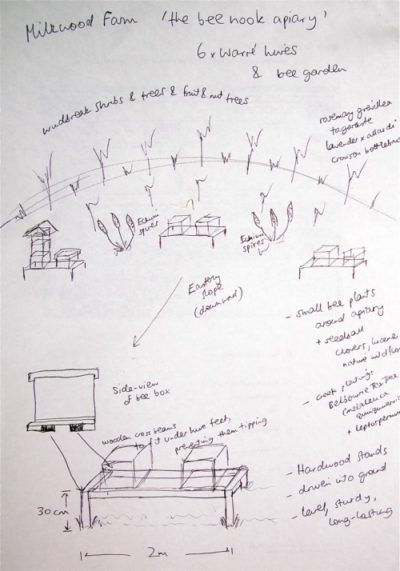 Milkwood Farm 'the bee nook apiary'
6 x Warré hives
& bee garden
windbreak shrubs & trees & fruit & nut trees
rosemary grevillea
tagasaste
lavender x allardii
crimson bottlebrush
Echium
spires
Echium
spires
Easterly
slope
(downward)
- small bee plants
around apiary
+ seedball
clovers,
nature
Side-view
of bee box
wooden cross beams
to fit under hive feet,
preventing them tipping
- Hardwood stands
- driven into ground
- level, sturdy,
long-lasting
30cm
2m